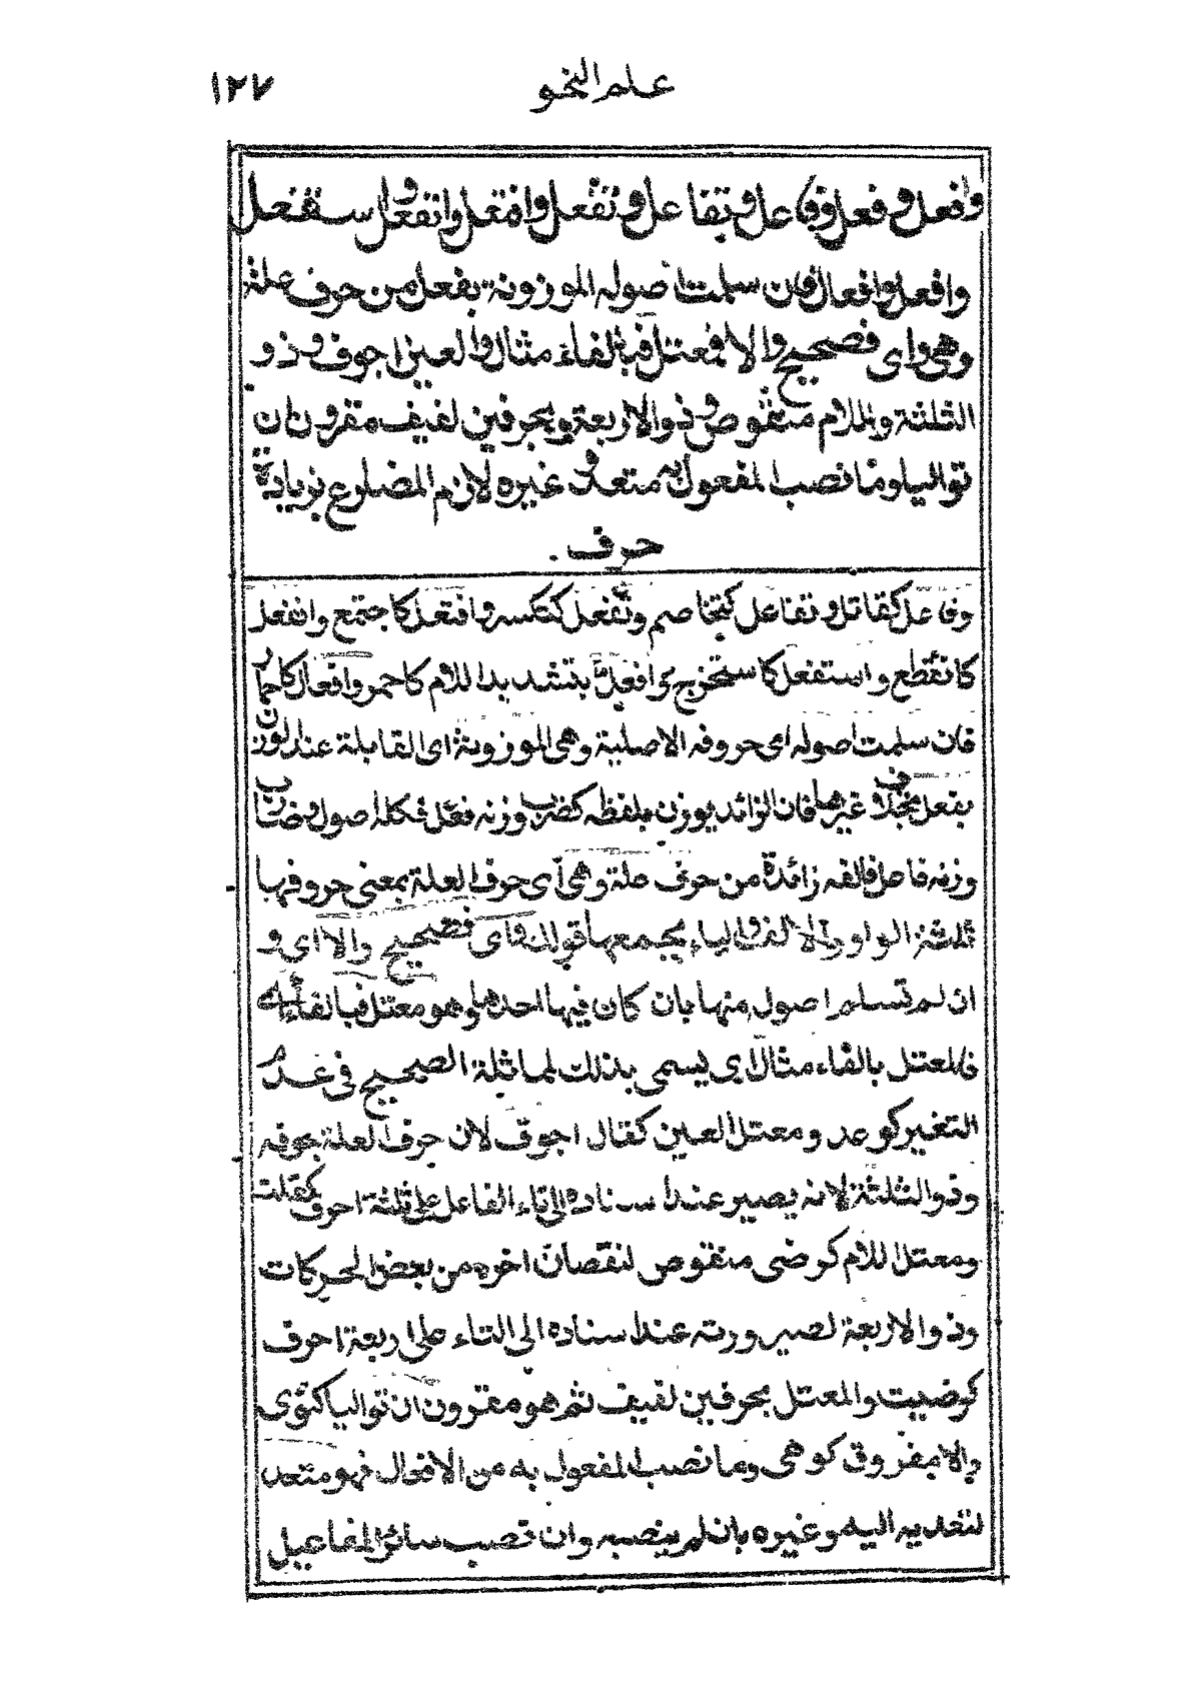 علم النحو ١٢٧
وافعل وفعل وفاعل وتفاعل وتفعل وافتعل وانفعل واستفعل
وافعل وافعال فان سلمت اصوله الموزونة بفعل من حرف علة
وهى واى فصحيح والا فمعتل فبالفاء مثال والعين اجوف وذو
الثلثة وباللام منقوص وذو الاربعة وبحرفين لفيف مقرون ان
تواليا وما نصب المفعول به متعد وغيره لازم المضارع بزيادة
حرف
وفاعل كقاتل وتفاعل كتخاصم وتفعل كتكسر وافتعل كاجتمع وانفعل
كانقطع واستفعل كاستخرج وافعل بتشديد اللام كاحمر وافعال كاحمار
فان سلمت اصوله اى حروفه الاصلية وهى الموزونة اى المقابلة عند الوزن
بفعل بخلاف غيرها فان الزائد يوزن بلفظه كضرب وزنه فعل فكله اصول وضارب
وزنه فاعل فالفه زائدة من حرف علة وهى اى حرف العلة بمعنى حروفها
ثلثة الواو والالف والياء يجمعها قولك واى فصحيح والا اى و
ان لم تسلم اصول منها بان كان فيها احدها وهو معتل فبالفاء اى
فالمعتل بالفاء مثال اى يسمى بذلك لمماثلة الصحيح فى عدم
التغير كوعد ومعتل العين كقال اجوف لان حرف العلة جوفه
وذو الثلثة لانه يصير عند اسناده الى تاء الفاعل على ثلثة احرف كقلت
ومعتل اللام كرضى منقوص لنقصان اخره من بعض الحركات
وذو الاربعة لصيرورته عند اسناده الى التاء على اربعة احرف
كرضيت والمعتل بحرفين لفيف ثم هو مقرون ان تواليا كثوى
والا مفروق كوهى وما نصب المفعول به من الافعال فهو متعد
لتعديه اليه وغيره بان لم ينصبه وان نصب سائر المفاعيل